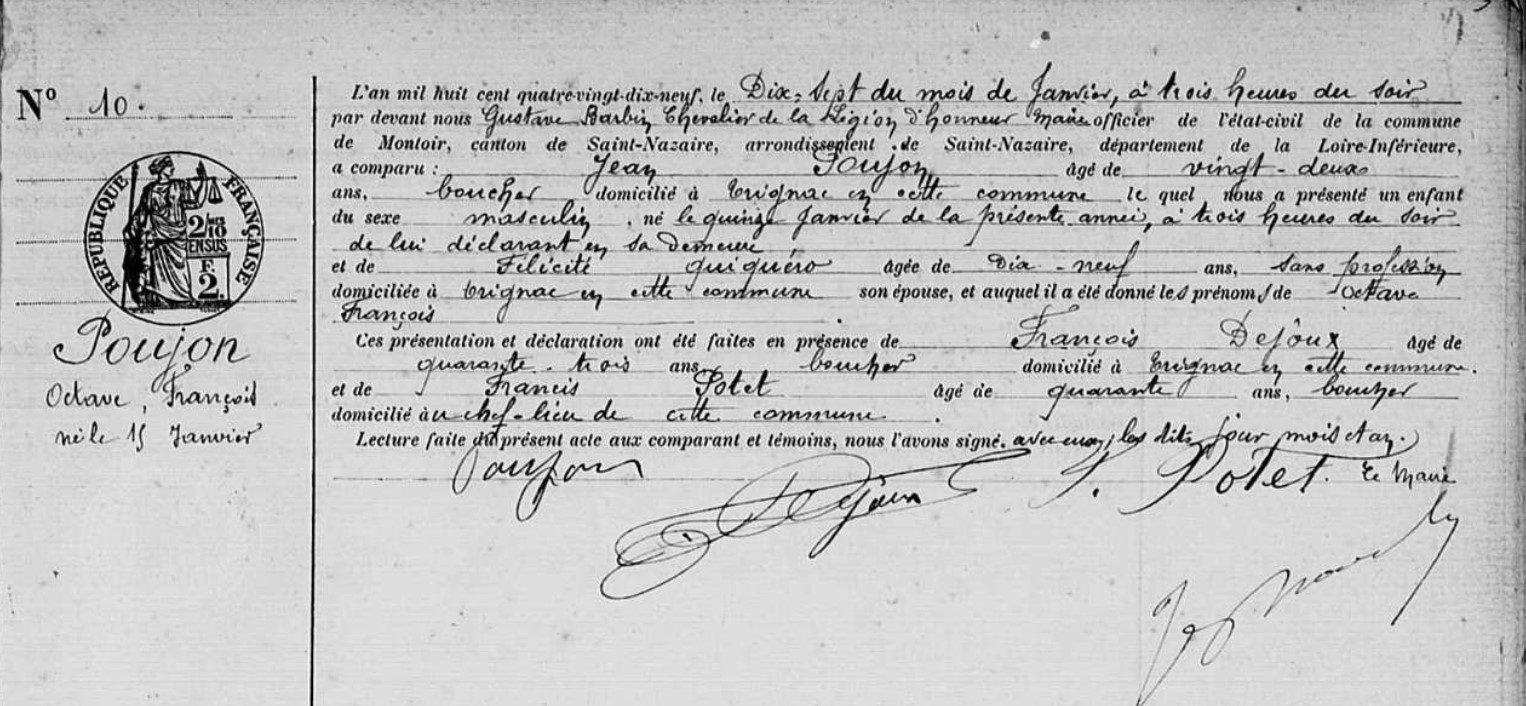 N° 10.
RÉPUBLIQUE FRANÇAISE
2/10
EN SUS
F.
2.
Poujon
Octave, François
né le 15 Janvier
L'an mil huit cent quatre-vingt-dix-neuf, le Dix-Sept du mois de Janvier, à trois heures du soir
par devant nous Gustave Barbin Chevalier de la Légion d'honneur Maire officier de l'état-civil de la commune
de Montoir, canton de Saint-Nazaire, arrondissement de Saint-Nazaire, département de la Loire-Inférieure,
a comparu : Jean Poujon âgé de vingt-deux
ans, boucher domicilié à Trignac en cette commune le quel nous a présenté un enfant
du sexe masculin, né le quinze Janvier de la présente année, à trois heures du soir
de lui déclarant en sa demeure
et de Félicité Quiquéro âgée de Dix-neuf ans, sans profession
domiciliée à Trignac en cette commune son épouse, et auquel il a été donné les prénoms de Octave
François
Ces présentation et déclaration ont été faites en présence de François Dejoux âgé de
quarante-trois ans boucher domicilié à Trignac en cette commune.
et de Francis Potet âgé de quarante ans, boucher
domicilié au chef-lieu de cette commune.
Lecture faite du présent acte aux comparant et témoins, nous l'avons signé, avec eux, les dits jour mois et an.
Poujon Dejoux F. Potet. Le Maire